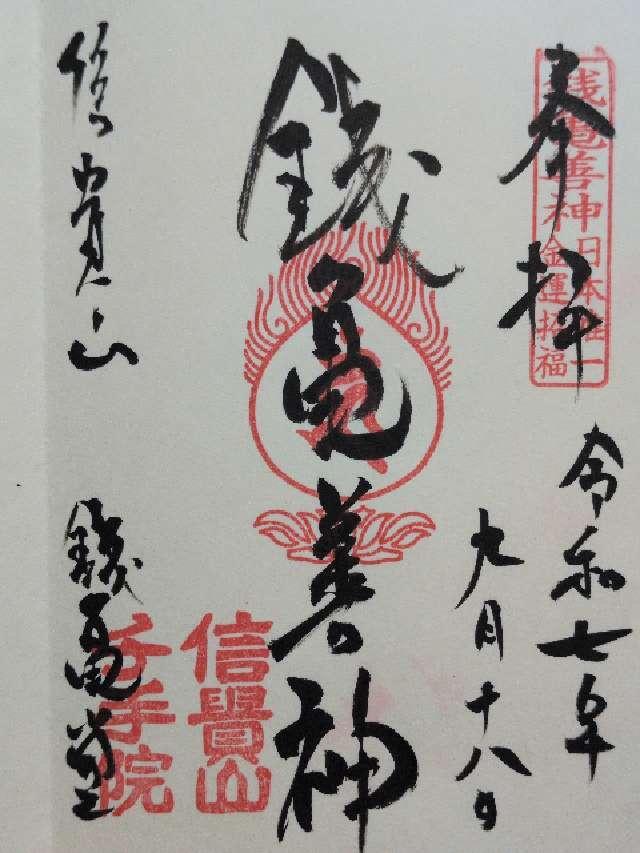 奉拝
銭亀善神
日本唯一
金運招福
令和七年
九月十八日
銭亀善神
信貴山
千手院
信貴山
銭亀堂